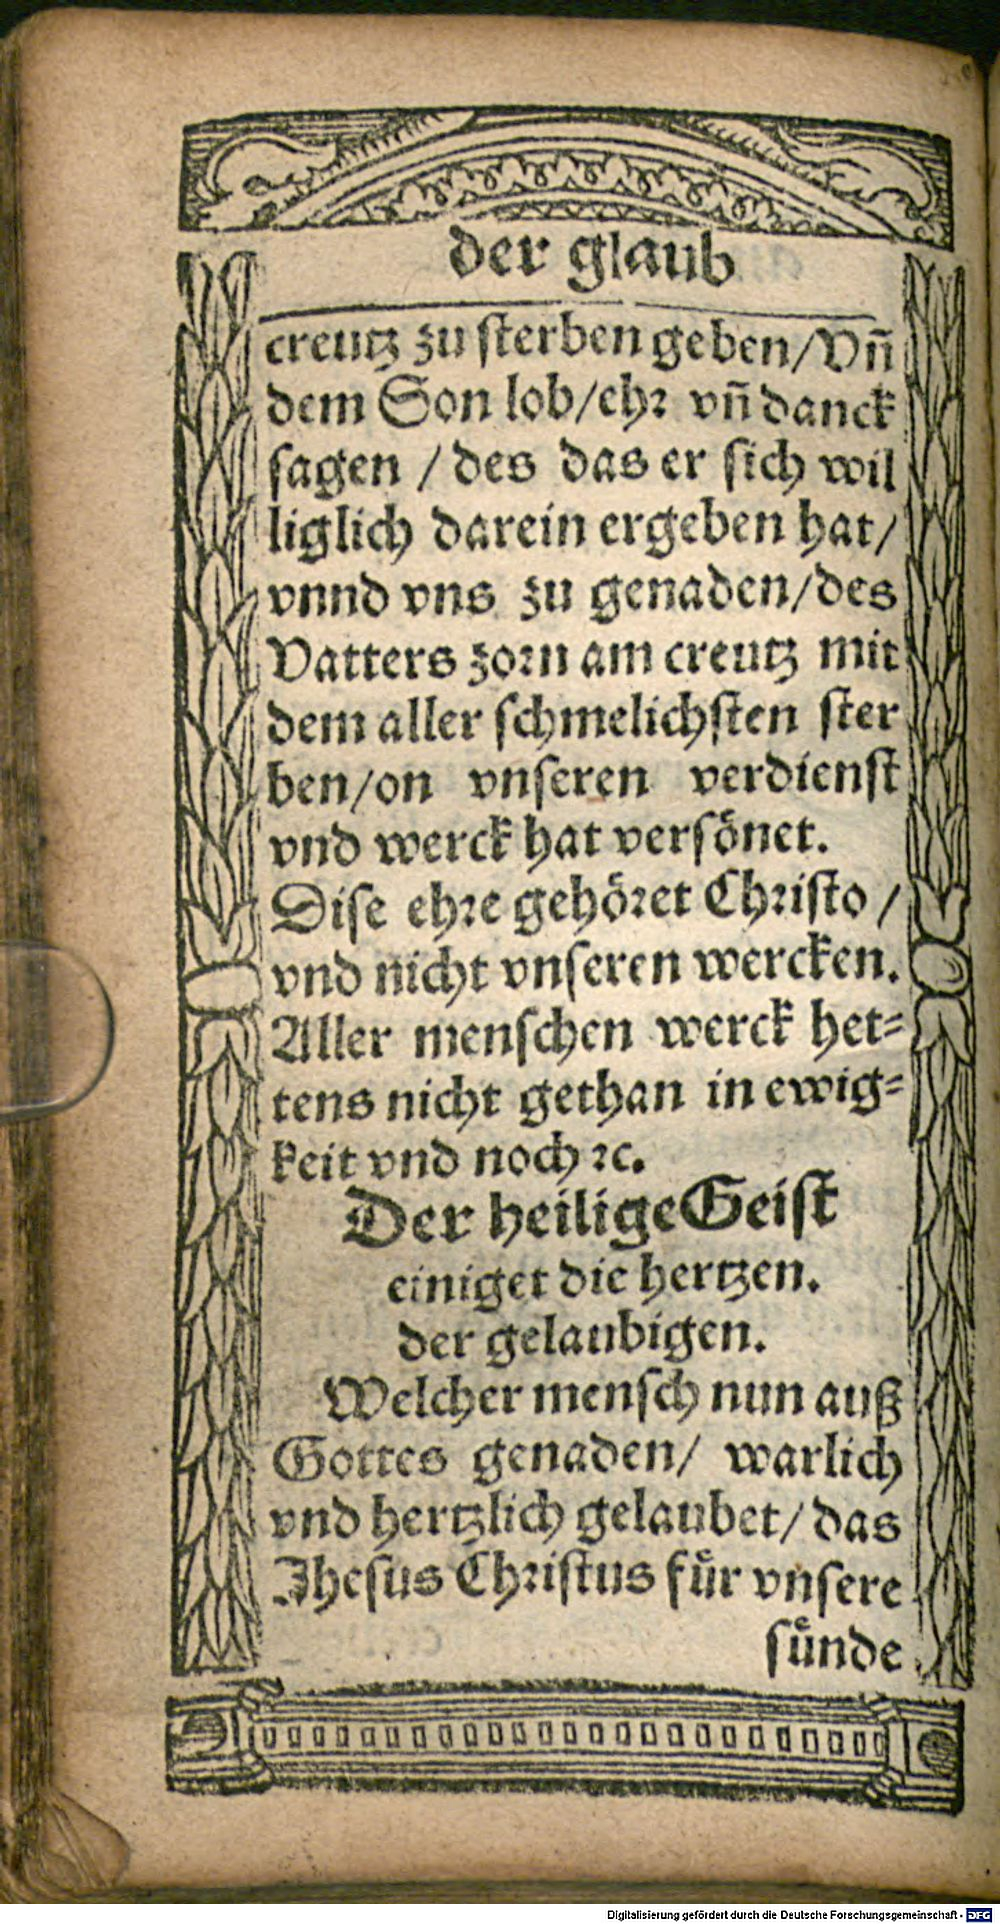 der glaub
creutz zu sterben geben/Vn̄
dem Son lob/ehr vn̄ danck
sagen / des das er sich wil
liglich darein ergeben hat/
vnnd vns zu genaden/des
Vatters zorn am creutz mit
dem aller schmelichsten ster
ben/on vnseren verdienst
vnd werck hat versönet.
Dise ehre gehöret Christo /
vnd nicht vnseren wercken.
Aller menschen werck het⸗
tens nicht gethan in ewig⸗
keit vnd noch ꝛc.
Der heilige Geist
einiget die hertzen.
der gelaubigen.
Welcher mensch nun auß
Gottes genaden/ warlich
vnd hertzlich gelaubet/das
Jhesus Christus fuͤr vnsere
suͤnde
Digitalisierung gefördert durch die Deutsche Forschungsgemeinschaft - DFG